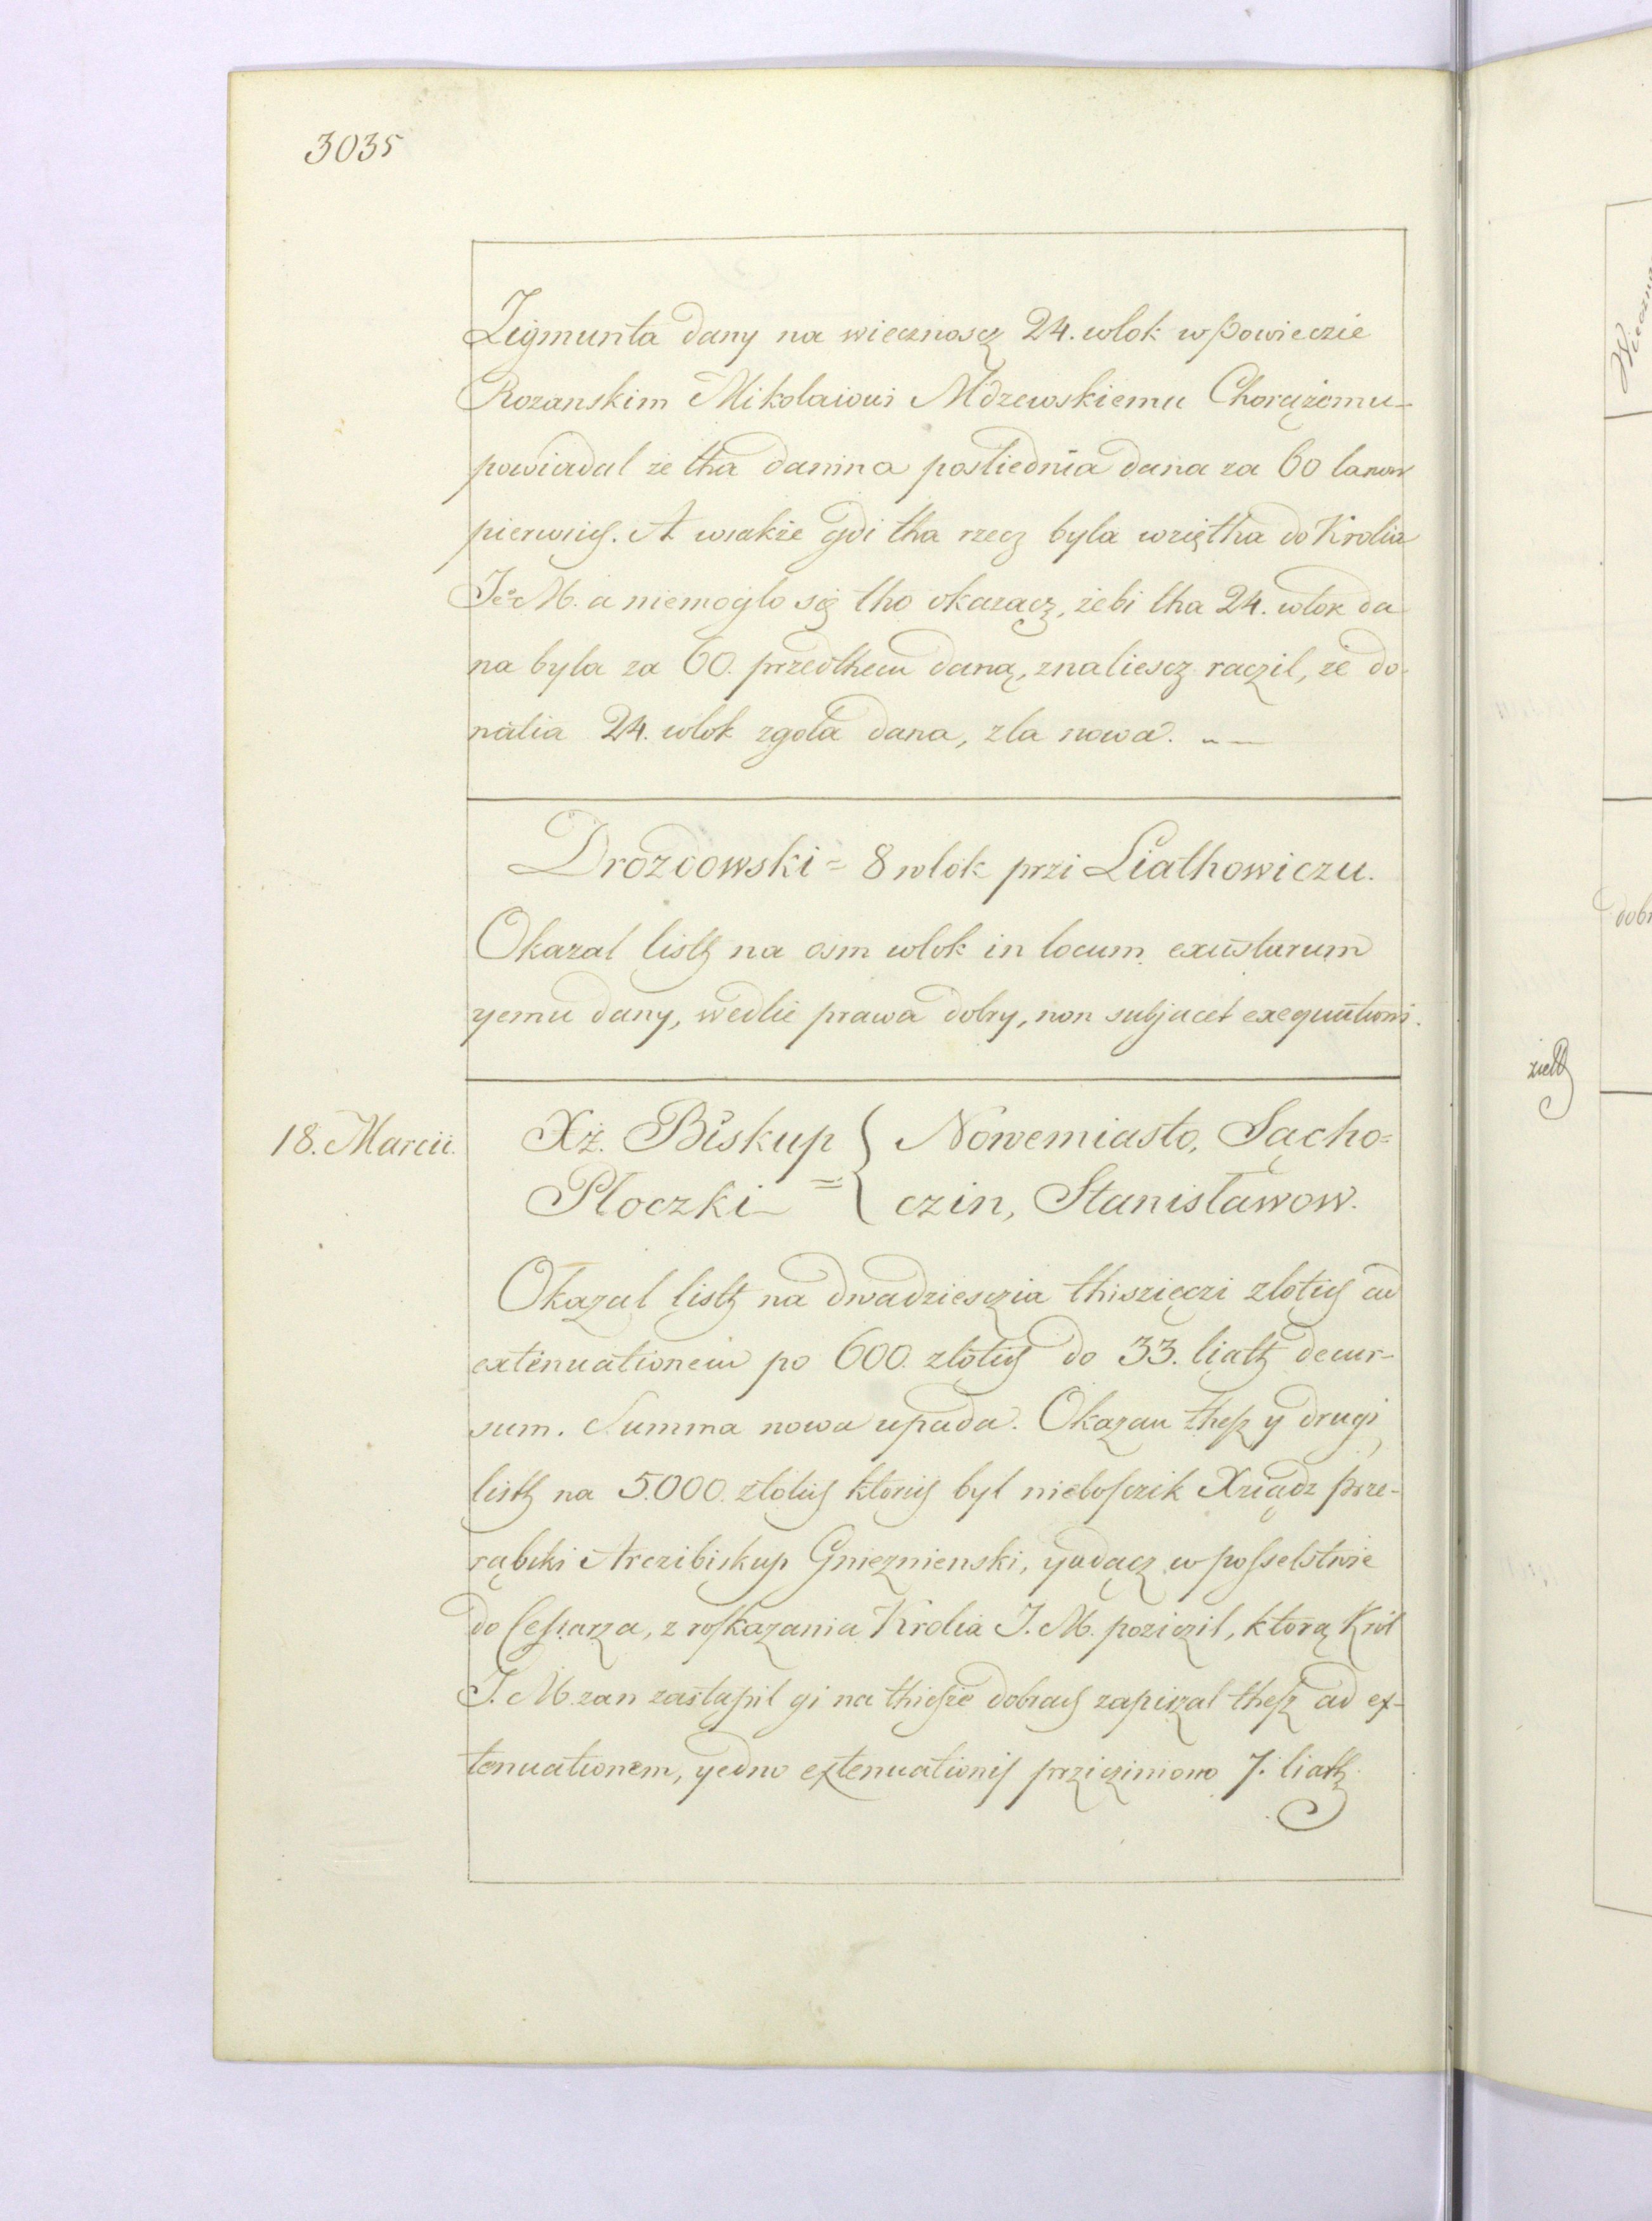 3035
Zigmunta dany na wiecznoscz 24. wlok w Powieczie
Rozanskim Mikolaiowi Mdzewskiemu Chorążemu
powiadal że tha danina posliednia dana za 60 lanow
pierwsich. A wsakże gdi tha rzecz byla wziętha do Krolia
Je° M. a niemoglo się tho okazacz, żebi tha 24. wlok da
na byla za 60. przedthem daną, znaliescz raczil, że do-
natia 24. wlok zgola dana, zla nowa.
Drozdowski = 8 wlok przi Liathowiczu.
Okazal listh na osm wlok in locum exustarum
yemu dany, wedlie prawa dobry, non subjacet exequutioni.
18. Marcii.
Xż. Biskup { Nowemiasto, Sącho=
Ploczki = { czin, Stanisławow.
Okazal listh na dwadziesczia thiszięczi zlotich ad
extenuationem po 600. zlotich do 33. liath decur-
sum. Summa nowa upada. Okazan thesz y drugi
listh na 5.000. zlotich ktorich byl niebosczik Xiądz Prze-
rąbski Arczibiskup Gnieznienski, yadącz w posselstwie
do Cessarza, z roskazania Krolia J. M. poziczil, ktorą Król
J. M. zan zastąpil gi na thichże dobrach zapiszal thesz ad ex-
tenuationem, yedno extenuationis przicziniono 7. liath.
zieth